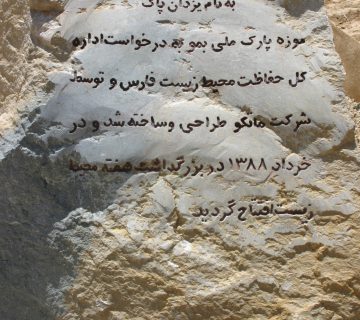 به نام یزدان پاک
موزه پارک ملی بمو به درخواست اداره
کل حفاظت محیط زیست فارس و توسط
شرکت مانکو طراحی و ساخته شد و در
خرداد ۱۳۸۸ در بزرگداشت هفته محیط
زیست افتتاح گردید